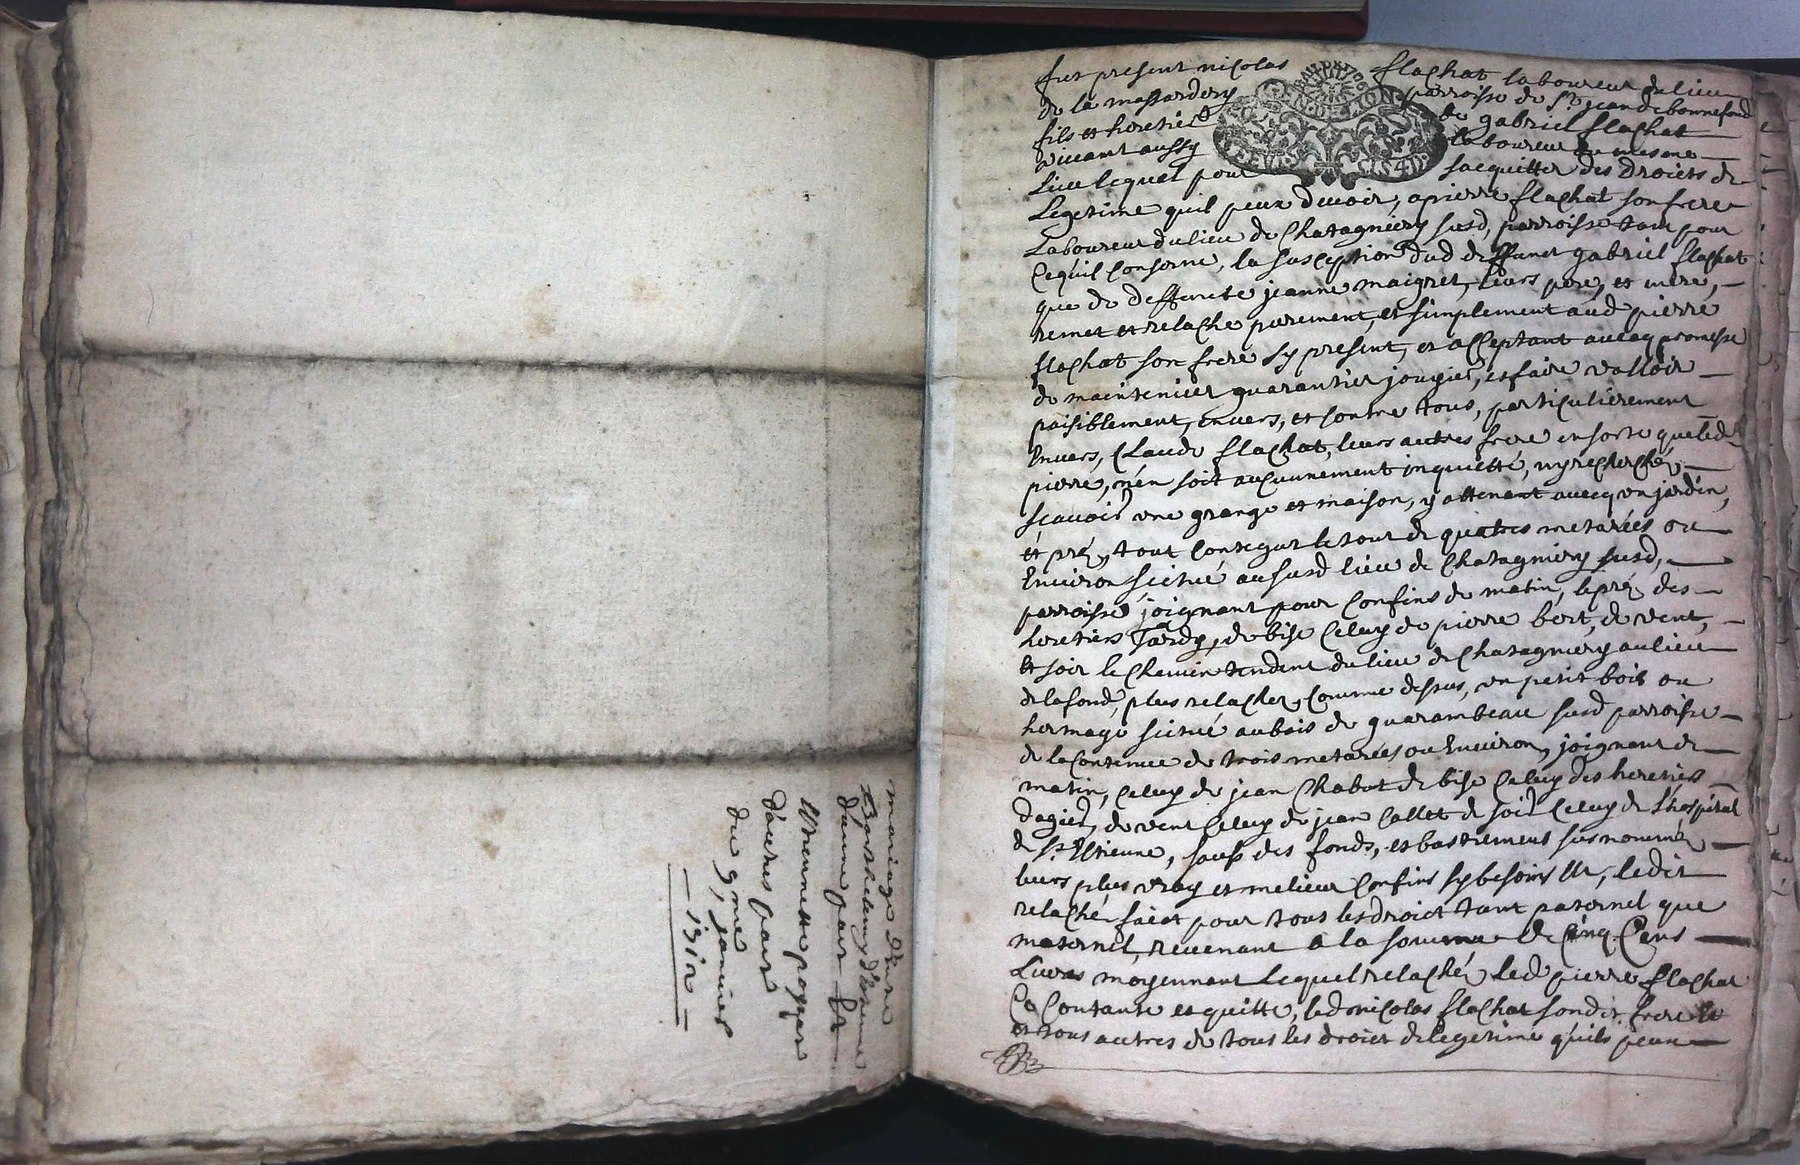 mariage d'entre
Barthelemy d'Estienne
d'aune part Et
Ethiennette poyzat
d'autres part
du 9me janvier
fut present nicolas flachat laboureur du lieu
de la massardery parroisse de St jean de bonnefond
fils et heretier de gabriel flachat
vivant aussy laboureur du mesme
Lieu lequel pour sacquitter des Droicts de
Legetime quil peux devoir, a pierre flachat son frere
Laboureur du lieu de Chatagniery susd, parroisse tant pour
Cequil Conserne, la susception dud deffunct gabriel flachat
que de deffuncte jeanne maigret, leurs pere, et mere,
remet et relache purement, et simplement aud pierre
flachat son frere sy present, et acceptant avecq promesse
de maintenier guarantier jouyier, et faire valloir
paisiblement, envers, et Contre tous, particulierement
Envers, Claude flachat, leurs autres frere en sorte que led
pierre, n'en soit aucunement inquietté, ny recherché,
sçavoir une grange et maison, y attenant avecq un jardin,
et pré, tout Contegue le tout de quatres metarées ou
Environ scitué au susd lieu de Chatagniery susd,
parroisse joignant pour Confins de matin, le pré des
heretiers Tardy, de bise Celuy de pierre bert, de vent,
et soir le Chemin tendent du lieu de Chatagniery au lieu
de lafond, plus relacher, Comme dessus, un petit bois ou
hermage scitué au bois de guarambeau susd parroisse
de la Contenue de trois metarées ou Environ, joignant de
matin, Celuy de jean Chabut de bise Celuy des heretiers
dagier, de vent Celuy de jean Callet de soir Celuy de l'hospital
de St Etienne, sauf des fonds, et bastiement susnommé
leurs plus vray et melieur Confins sy besoins Est, ledit
relaché faict pour tous les droict tant paternel que
maternel, revenant a la somme de Cinq Cens
Livres moyennant Lequel relaché, led pierre flachat
Ce Contante et quitte, led nicolas flachat sondit frere et
et tous autres de tous les droict de legetime qu'ils peux